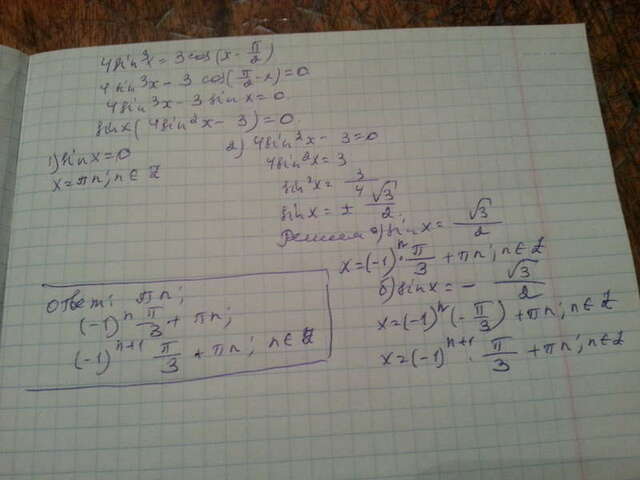 4sin³x = 3cos(x - π/2)
4sin³x - 3 cos(π/2 - x) = 0
4sin³x - 3 sin x = 0.
sin x (4sin²x - 3) = 0.
1) sin x = 0
x = πn; n ∈ Z
2) 4sin²x - 3 = 0
4sin²x = 3
sin²x = 3/4
sin x = ± √3/2.
Решаем а) sin x = √3/2
x = (-1)ⁿ · π/3 + πn; n ∈ Z
б) sin x = - √3/2
x = (-1)ⁿ (- π/3) + πn; n ∈ Z
x = (-1)ⁿ⁺¹ · π/3 + πn; n ∈ Z
Ответ: πn;
(-1)ⁿ π/3 + πn;
(-1)ⁿ⁺¹ π/3 + πn; n ∈ Z